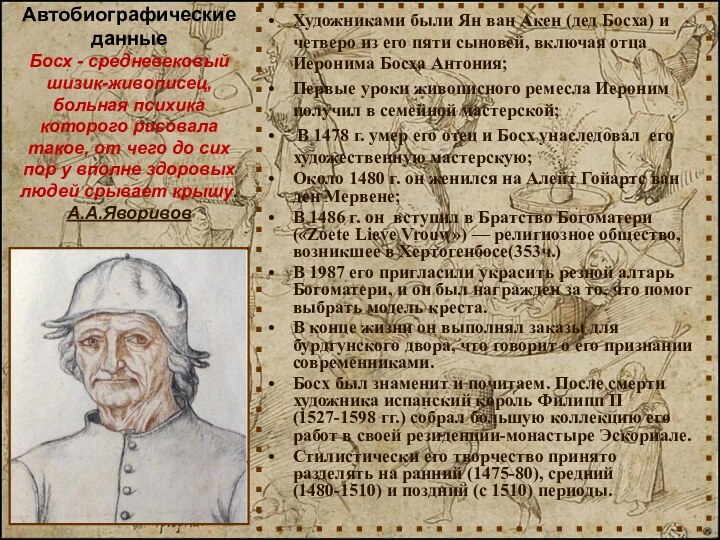 Автобиографические
данные
Босх - средневековый
шизик-живописец,
больная психика
которого рисовала
такое, от чего до сих
пор у вполне здоровых
людей срывает крышу.
А.А.Яворивов
• Художниками были Ян ван Акен (дед Босха) и
четверо из его пяти сыновей, включая отца
Иеронима Босха Антония;
• Первые уроки живописного ремесла Иероним
получил в семейной мастерской;
• В 1478 г. умер его отец и Босх унаследовал его
художественную мастерскую;
• Около 1480 г. он женился на Алейт Гойартс ван
ден Мервене;
• В 1486 г. он вступил в Братство Богоматери
(«Zoete Lieve Vrouw») — религиозное общество,
возникшее в Хертогенбосе(353ч.)
• В 1987 его пригласили украсить резной алтарь
Богоматери, и он был награжден за то, что помог
выбрать модель креста.
• В конце жизни он выполнял заказы для
бургундского двора, что говорит о его признании
современниками.
• Босх был знаменит и почитаем. После смерти
художника испанский король Филипп II
(1527-1598 гг.) собрал большую коллекцию его
работ в своей резиденции-монастыре Эскориале.
• Стилистически его творчество принято
разделять на ранний (1475-80), средний
(1480-1510) и поздний (с 1510) периоды.